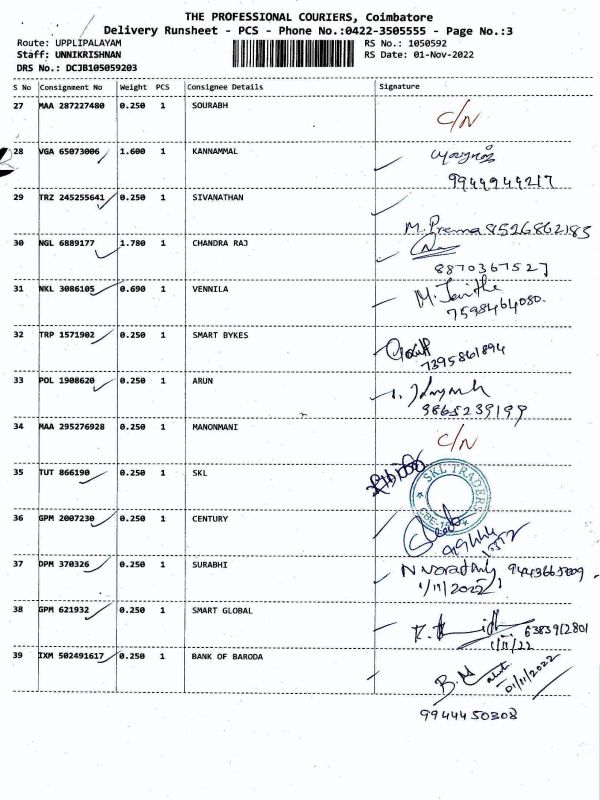 THE PROFESSIONAL COURIERS, Coimbatore
Delivery Runsheet - PCS - Phone No.:0422-3505555 - Page No.:3
Route: UPPLIPALAYAM RS No.: 1050592
Staff: UNNIKRISHNAN RS Date: 01-Nov-2022
DRS No.: DCJB105059203
S No Consignment No Weight PCS Consignee Details Signature
27 MAA 287227480 0.250 1 SOURABH C/N
28 VGA 65073006 1.600 1 KANNAMMAL
9944944217
29 TRZ 245255641 0.250 1 SIVANATHAN
M. Prema 8526862183
30 NGL 6889177 1.780 1 CHANDRA RAJ
8870367527
31 NKL 3086105 0.690 1 VENNILA
7598464080.
32 TRP 1571902 0.250 1 SMART BYKES
7395861894
33 POL 1908620 0.250 1 ARUN
9865239199
34 MAA 295276928 0.250 1 MANONMANI C/N
35 TUT 866190 0.250 1 SKL
SKL TRADERS
36 GPM 2007230 0.250 1 CENTURY
37 DPM 370326 0.250 1 SURABHI
1/11/2022
38 GPM 621932 0.250 1 SMART GLOBAL
6383912801
1/11/22
39 IXM 502491617 0.250 1 BANK OF BARODA
01/11/2022
9944450308